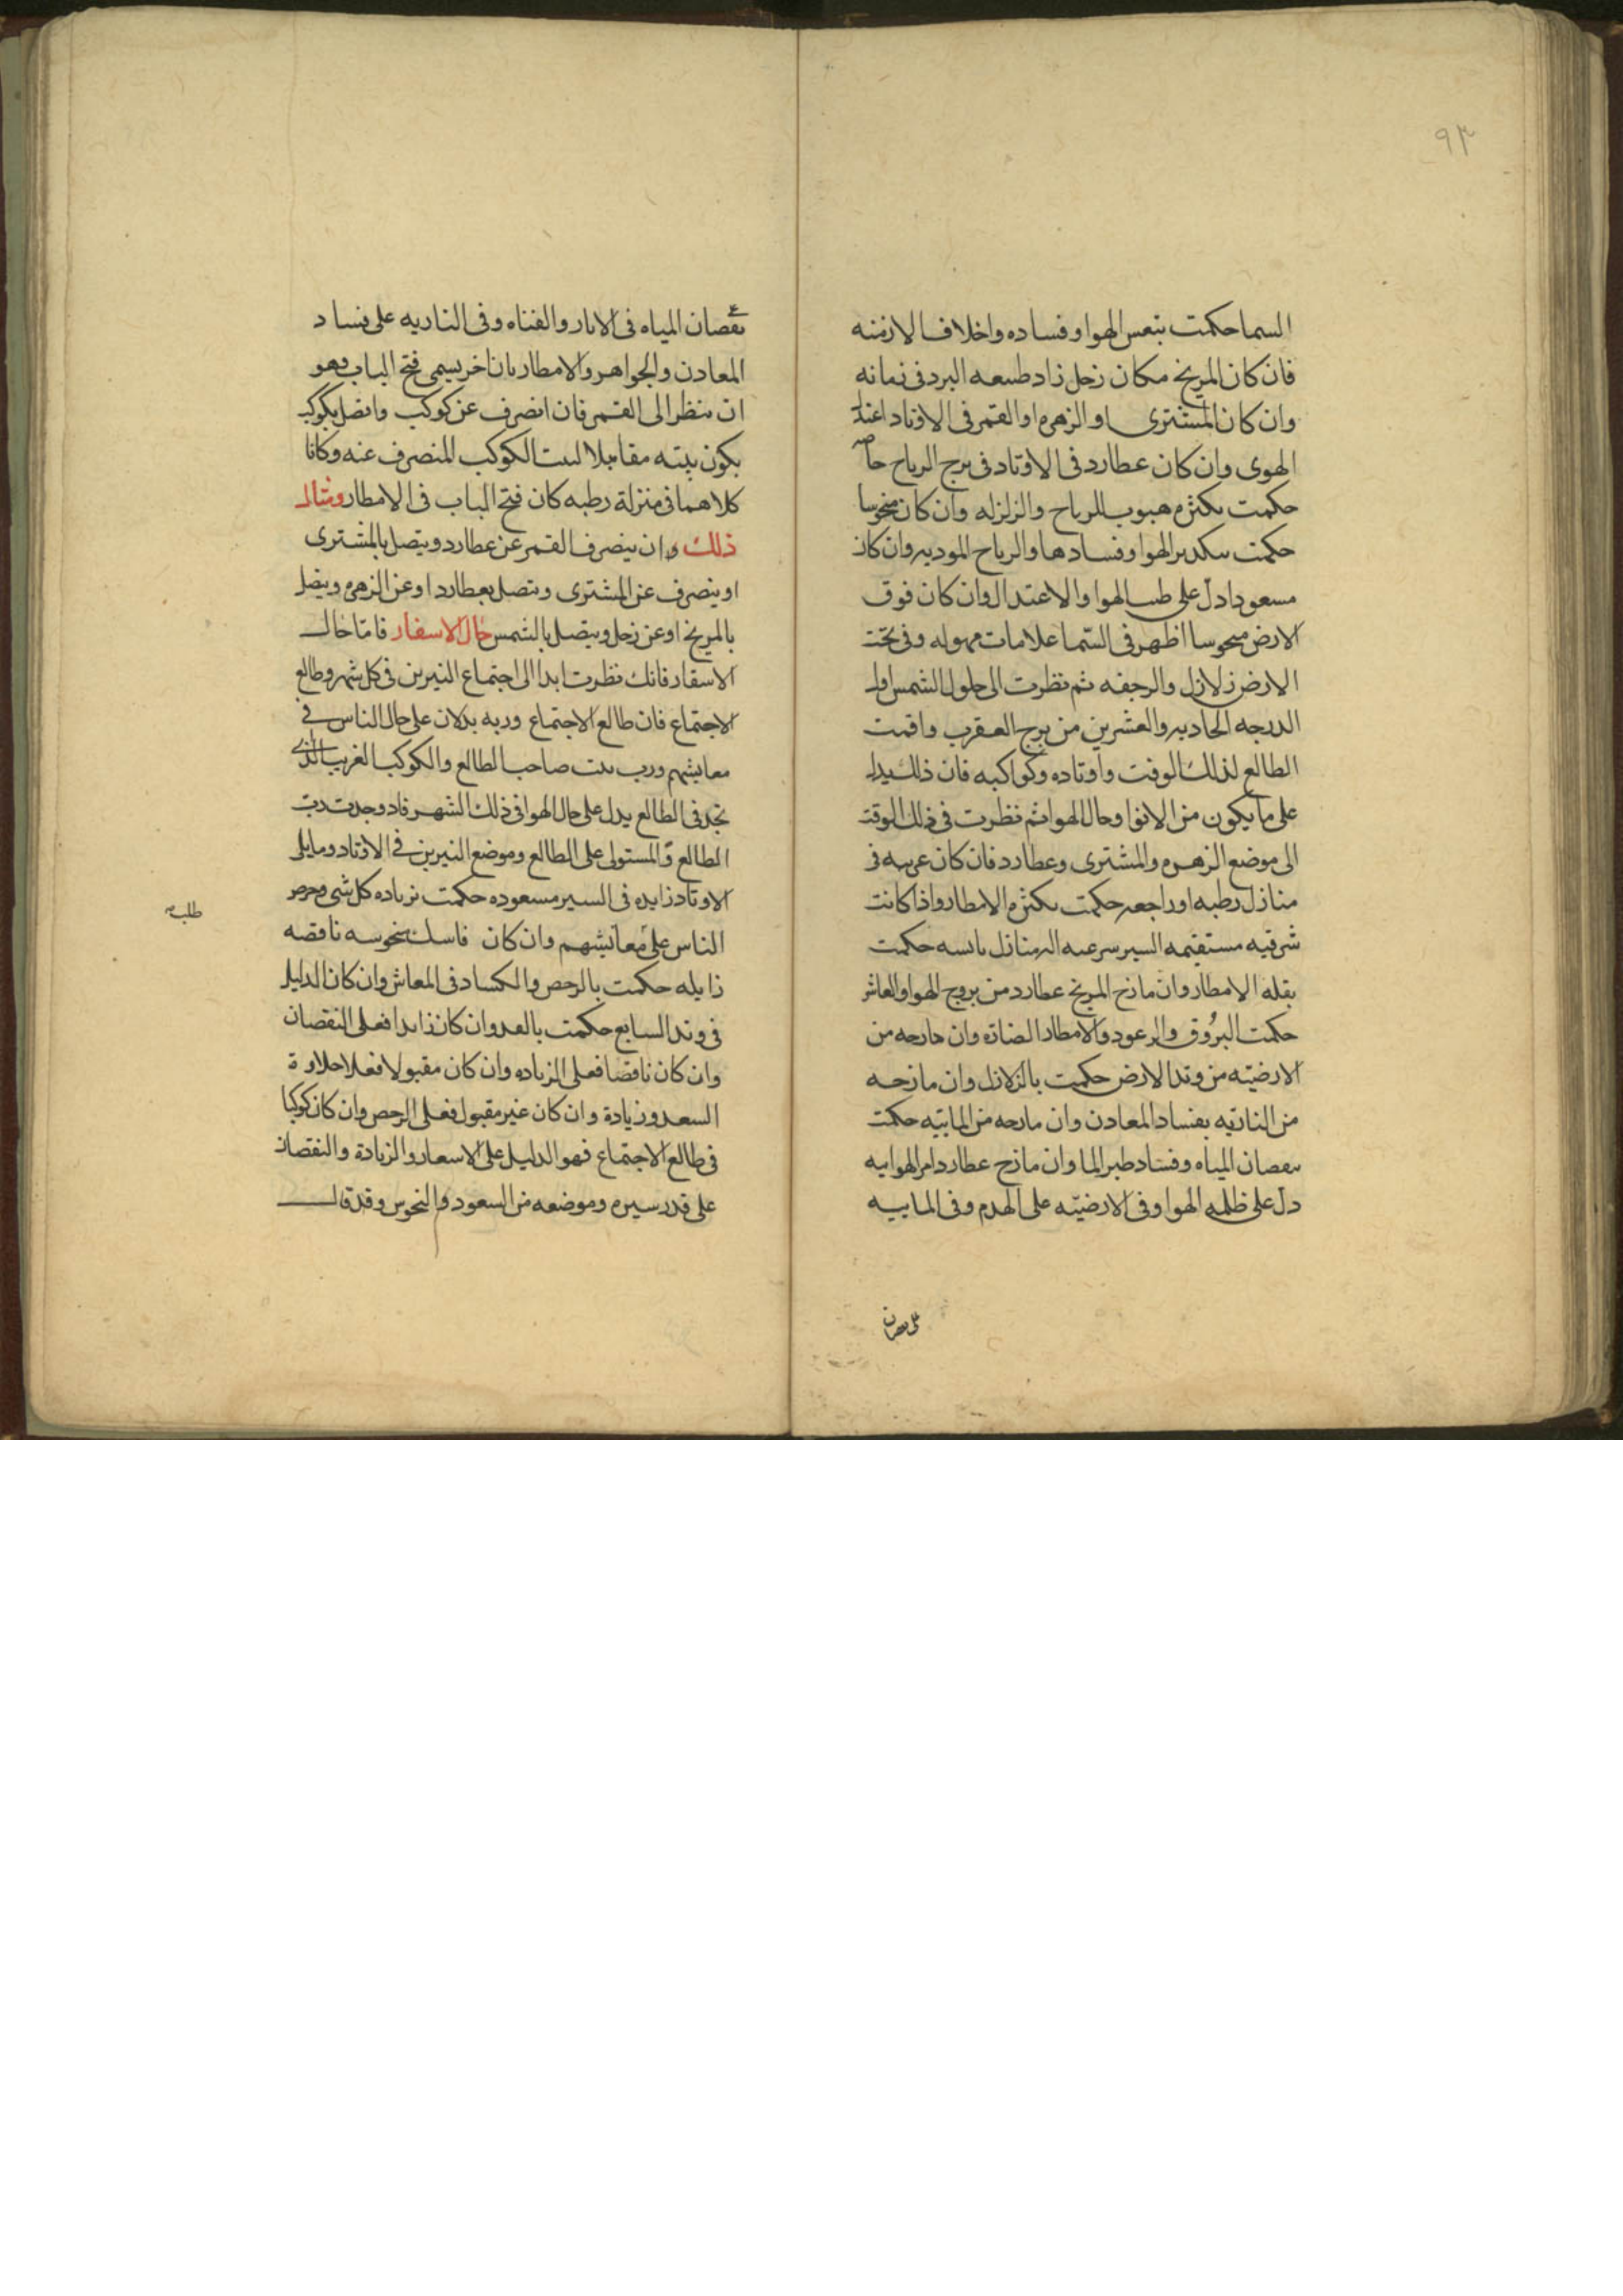 ٩٣
السما حكمت بتعس الهوا وفساده واخلاف الازمنه
فان كان المريخ مكان زحل زاد طبيعه البرد فى زمانه
وان كان المشترى او الزهره او القمر فى الاوتاد اعتدل
الهوى وان كان عطارد فى الاوتاد فى برج الرياح خاصه
حكمت بكثره هبوب الرياح والزلزله وان كان منحوسا
حكمت بتكدير الهوا وفسادها والرياح الموديه وان كان
مسعودا دل على طيب الهوا والاعتدال وان كان فوق
الارض منحوسا اظهر فى السّما علامات مهوله وفى تحت
الارض زلازل والرجفه ثم نظرت الى حلول الشمس اول
الدرجه الحاديه والعشرين من برج العقرب واقمت
الطالع لذلك الوقت واوتاده وكواكبه فان ذلك يدل
على ما يكون من الانوا وحال الهوا ثم نظرت فى ذلك الوقت
الى موضع الزهره والمشترى وعطارد فان كان غربيه فى
منازل رطبه او راجعه حكمت بكثره الامطار واذا كانت
شرقيه مستقيمه السير سرعه الى منازل يابسه حكمت
بقله الامطار وان مازج المريخ عطارد من بروج الهوا والعاشر
حكمت البرُوق والرعود والامطار الضارة وان مازجه من
الارضيّه من وتد الارض حكمت بالزلازل وان مازجه
من الناريّه بفساد المعادن وان مازجه من المائيّه حكمت
بنقصان المياه وفساد طير الما وان مازج عطارد امر الهوايه
دل على ظلمه الهوا وفى الارضيّه على الهدم وفى المائيه
على نقصان
نقصان المياه فى الابار والقناه وفى الناريه على فساد
المعادن والجواهر والامطار بان اخر يسمى فتح الباب وهو
ان ينظر الى القمر فان انصرف عن كوكب واتصل بكوكب
يكون بيته مقابلا لبيت الكوكب المنصرف عنه وكانا
كلاهما فى منزلة رطبه كان فتح الباب فى الامطار ومثال
ذلك وان ينصرف القمر عن عطارد ويتصل بالمشترى
او ينصرف عن المشترى ويتصل بعطارد او عن الزهره ويتصل
بالمريخ او عن زحل ويتصل بالشمس حال الاسفار فامّا حال
الاسقار فانك نظرت ابدا الى اجتماع النيرين فى كل شهر وطالع
الاجتماع فان طالع الاجتماع وربه يدلان على حال الناس فى
معايشهم ورب بيت صاحب الطالع والكوكب الغريب الذى
تجد فى الطالع يدل على حال الهوا فى ذلك الشهر فاد وجدت رب
الطالع والمستولى على الطالع وموضع النيرين فى الاوتاد وما يلى
الاوتاد زايده فى السير مسعوده حكمت بزياده كل شى وحرص
طلب
الناس على معايشهم وان كان فاسك منحوسه ناقصه
زايله حكمت بالرخص والكساد فى المعاش وان كان الدليل
فى وتد السابع حكمت بالعدوان كان زايدا فعلى النقصان
وان كان ناقصا فعلى الزياده وان كان مقبولا فعلا حلاوة
السعد وزيادة وان كان غير مقبول فعلى الرخص وان كان كوكبا
فى طالع الاجتماع فهو الدليل على الاسعار والزيادة والنقصان
على قدر سيره وموضعه من السعود والنحوس وقد قال